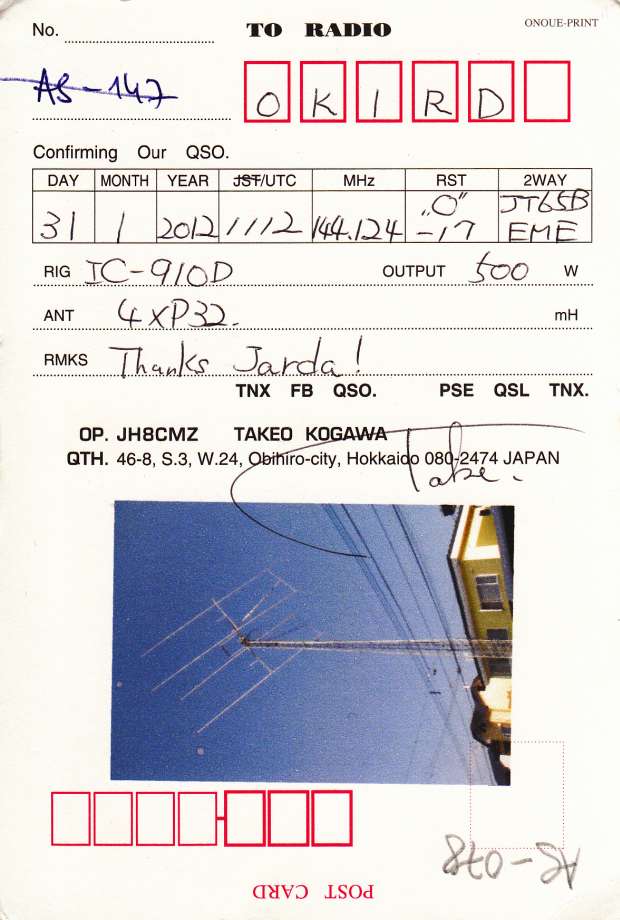 No. TO RADIO ONOUE-PRINT
AS-147 OK1RD
Confirming Our QSO.
DAY MONTH YEAR JST/UTC MHz RST 2WAY
31 1 2012 1112 144.124 "O" -17 JT65B EME
RIG IC-910D OUTPUT 500 W
ANT 4xP32. mH
RMKS Thanks Jarda!
TNX FB QSO. PSE QSL TNX.
OP. JH8CMZ TAKEO KOGAWA
QTH. 46-8, S.3, W.24, Obihiro-city, Hokkaido 080-2474 JAPAN
Take.
AS-078
POST CARD